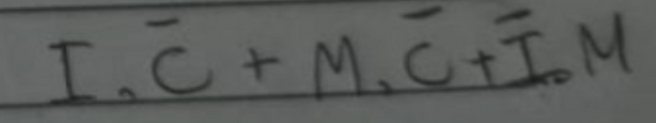 I.C̄ + M.C̄ + Ī.M